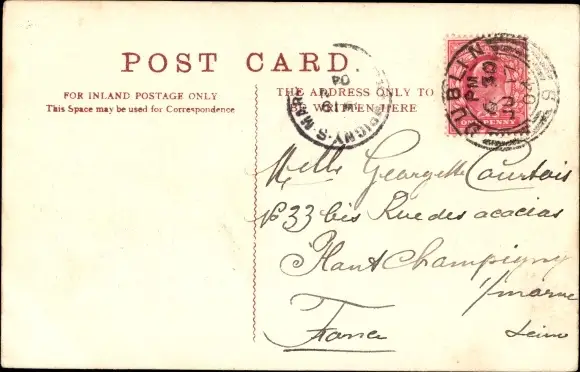 POST CARD.
FOR INLAND POSTAGE ONLY
This Space may be used for Correspondence
THE ADDRESS ONLY TO
BE WRITTEN HERE
DUBLIN
PM
04
ONE PENNY
04
PIGNY-S-MAR
Melle Georgette Courtois
No 33 bis Rue des acacias
Haut Champigny
s/marne
France
Seine